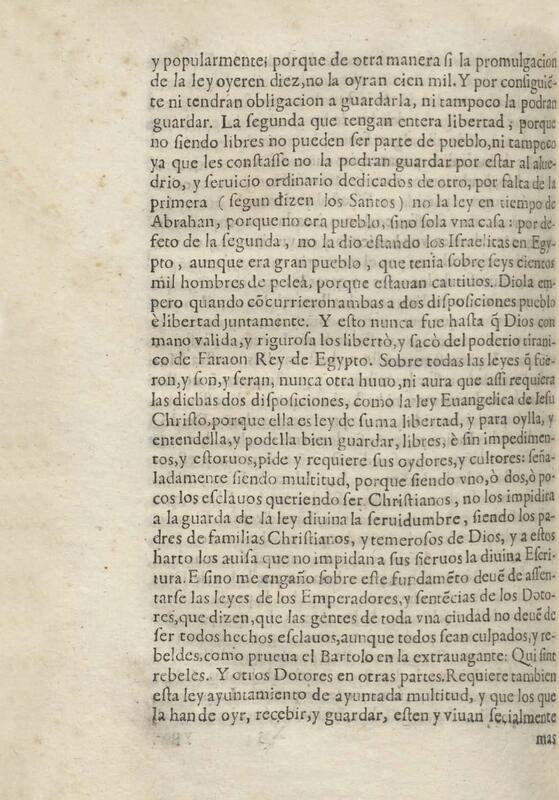 y popularmente; porque de otra manera ſi la promulgacion
de la ley oyeren diez, no la oyran cien mil. Y por conſiguiẽ-
te ni tendran obligacion a guardarla, ni tampoco la podran
guardar. La ſegunda que tengan entera libertad, porque
no ſiendo libres no pueden ſer parte de pueblo, ni tampoco
ya que les conſtaſſe no la podran guardar por eſtar al alue-
drio, y ſeruicio ordinario dedicados de otro, por falta de la
primera (ſegun dizen los Santos) no la ley en tiempo de
Abrahan, porque no era pueblo, ſino ſola vna caſa: por de-
feto de la ſegunda, no la dio eſtando los Iſraelitas en Egy-
pto, aunque era gran pueblo, que tenia ſobre ſeys cientos
mil hombres de pelea, porque eſtauan cautiuos. Diola em-
pero quando cõcurrieron ambas a dos diſpoſiciones pueblo
è libertad juntamente. Y eſto nunca fue haſta q̃ Dios con
mano valida, y riguroſa los libertò, y ſacò del poderio tirani-
co de Faraon Rey de Egypto. Sobre todas las leyes q̃ fue-
ron, y ſon, y ſeran, nunca otra huuo, ni aura que aſſi requiera
las dichas dos diſpoſiciones, como la ley Euangelica de Ieſu
Chriſto, porque ella es ley de ſuma libertad, y para oylla, y
entendella, y podella bien guardar, libres, è ſin impedimen-
tos, y eſtoruos, pide y requiere ſus oydores, y cultores: ſeña-
ladamente ſiendo multitud, porque ſiendo vno, ò dos, ò po-
cos los eſclauos queriendo ſer Chriſtianos, no los impidira
a la guarda de la ley diuina la ſeruidumbre, ſiendo los pa-
dres de familias Chriſtianos, y temeroſos de Dios, y a eſtos
harto los auiſa que no impidan a ſus ſieruos la diuina Eſcri-
tura. E ſino me engaño ſobre eſte fundamẽto deuẽ de aſſen-
tarſe las leyes de los Emperadores, y ſentẽcias de los Doto-
res, que dizen, que las gentes de toda vna ciudad no deuẽ de
ſer todos hechos eſclauos, aunque todos ſean culpados, y re-
beldes, como prueua el Bartolo en la extrauagante: Qui ſint
rebeles. Y otros Dotores en otras partes. Requiere tambien
eſta ley ayuntamiento de ayuntada multitud, y que los que
la han de oyr, recebir, y guardar, eſten y viuan ſecialmente
mas